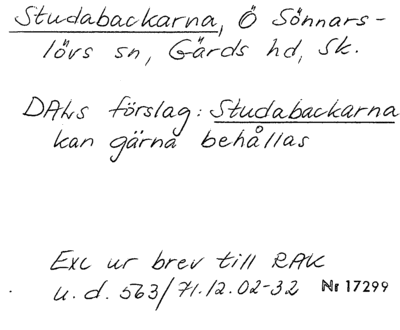 Studabackarna, Ö Sönnars-
lövs sn, Gärds hd, Sk.
DALs förslag: Studabackarna
kan gärna behållas
Exc ur brev till RAK
u.d. 563/71.12.02-32 Nr 17299